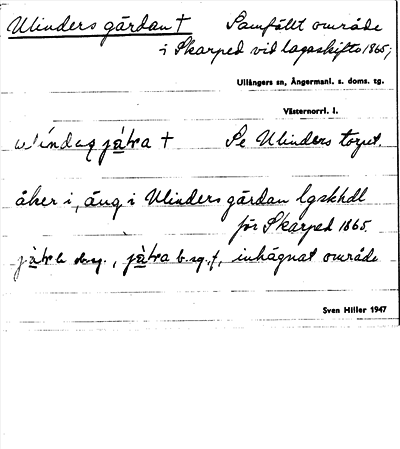 Ulinders gärdan † Samfällt område
i Skarped vid lagaskifte 1865;
Ullångers sn, Ångermanl. s. doms. tg.
Västernorrl. l.
Se Ulinders torpet.
åker i, äng i Ulinders gärdan Lgskhdl
för Skarped 1865.
inhägnat område
Sven Hiller 1947